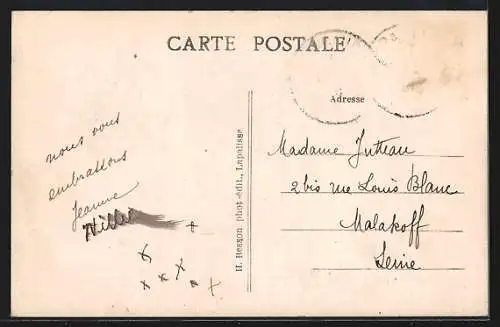 CARTE POSTALE
Adresse
nous vous
embrassons
Jeanne
H. Besson, phot-édit., Lapalisse
Madame Jutteau
2 bis rue Louis Blanc
Malakoff
Seine